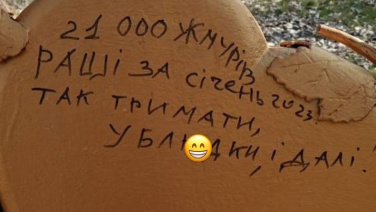 21 000 ЖМУРІВ
РАЩІ ЗА СІЧЕНЬ 2023
ТАК ТРИМАТИ,
І ДАЛІ!